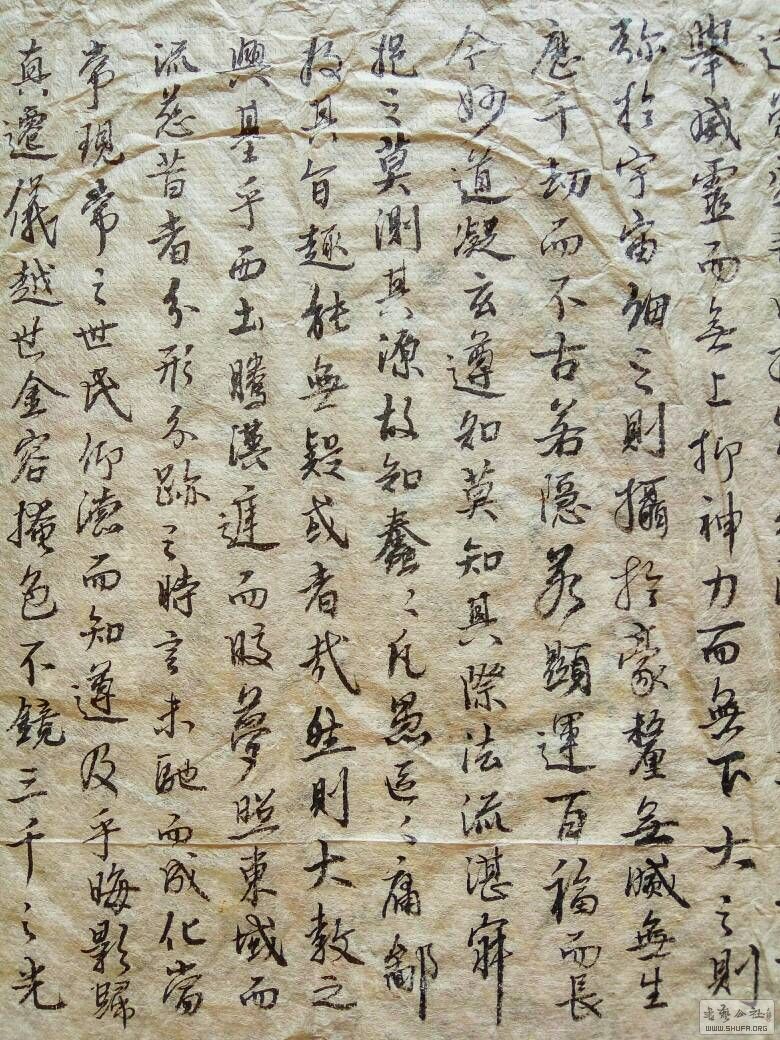 舉威靈而無上抑神力而無下大之則
弥於宇宙細之則攝於豪釐無滅無生
歷千劫而不古若隱若顯運百福而長
今妙道凝玄遵知莫知其際法流湛寂
挹之莫測其源故知蠢々凡愚區々庸鄙
投其旨趣能無疑或者哉然則大教之
興基乎西土騰漢庭而皎夢照東域而
流慈昔者分形分跡之時言未馳而成化當
常現常之世民仰德而知遵及乎晦影歸
真遷儀越世金容掩色不鏡三千之光
WWW.SHUFA.ORG